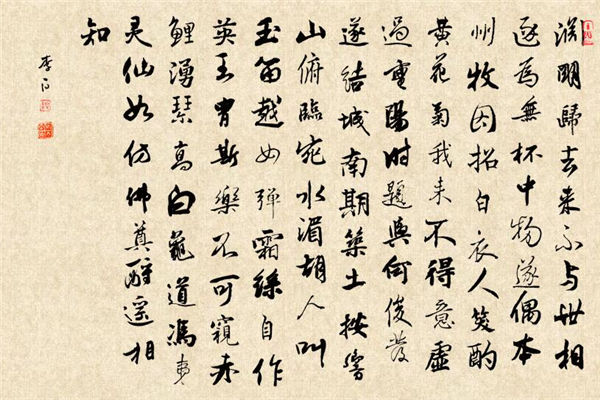 淵明歸去来不与世相
逐為無杯中物遂偶本
州牧因招白衣人笑酌
黄花菊我来不得意虚
過重陽时題輿何俊發
遂結城南期築土按響
山俯臨宛水湄胡人叫
玉笛越女弹霜絲自作
英王胄斯樂不可窺赤
鲤湧琴高白龜道馮夷
灵仙如仿佛奠酹遥相
知
李白